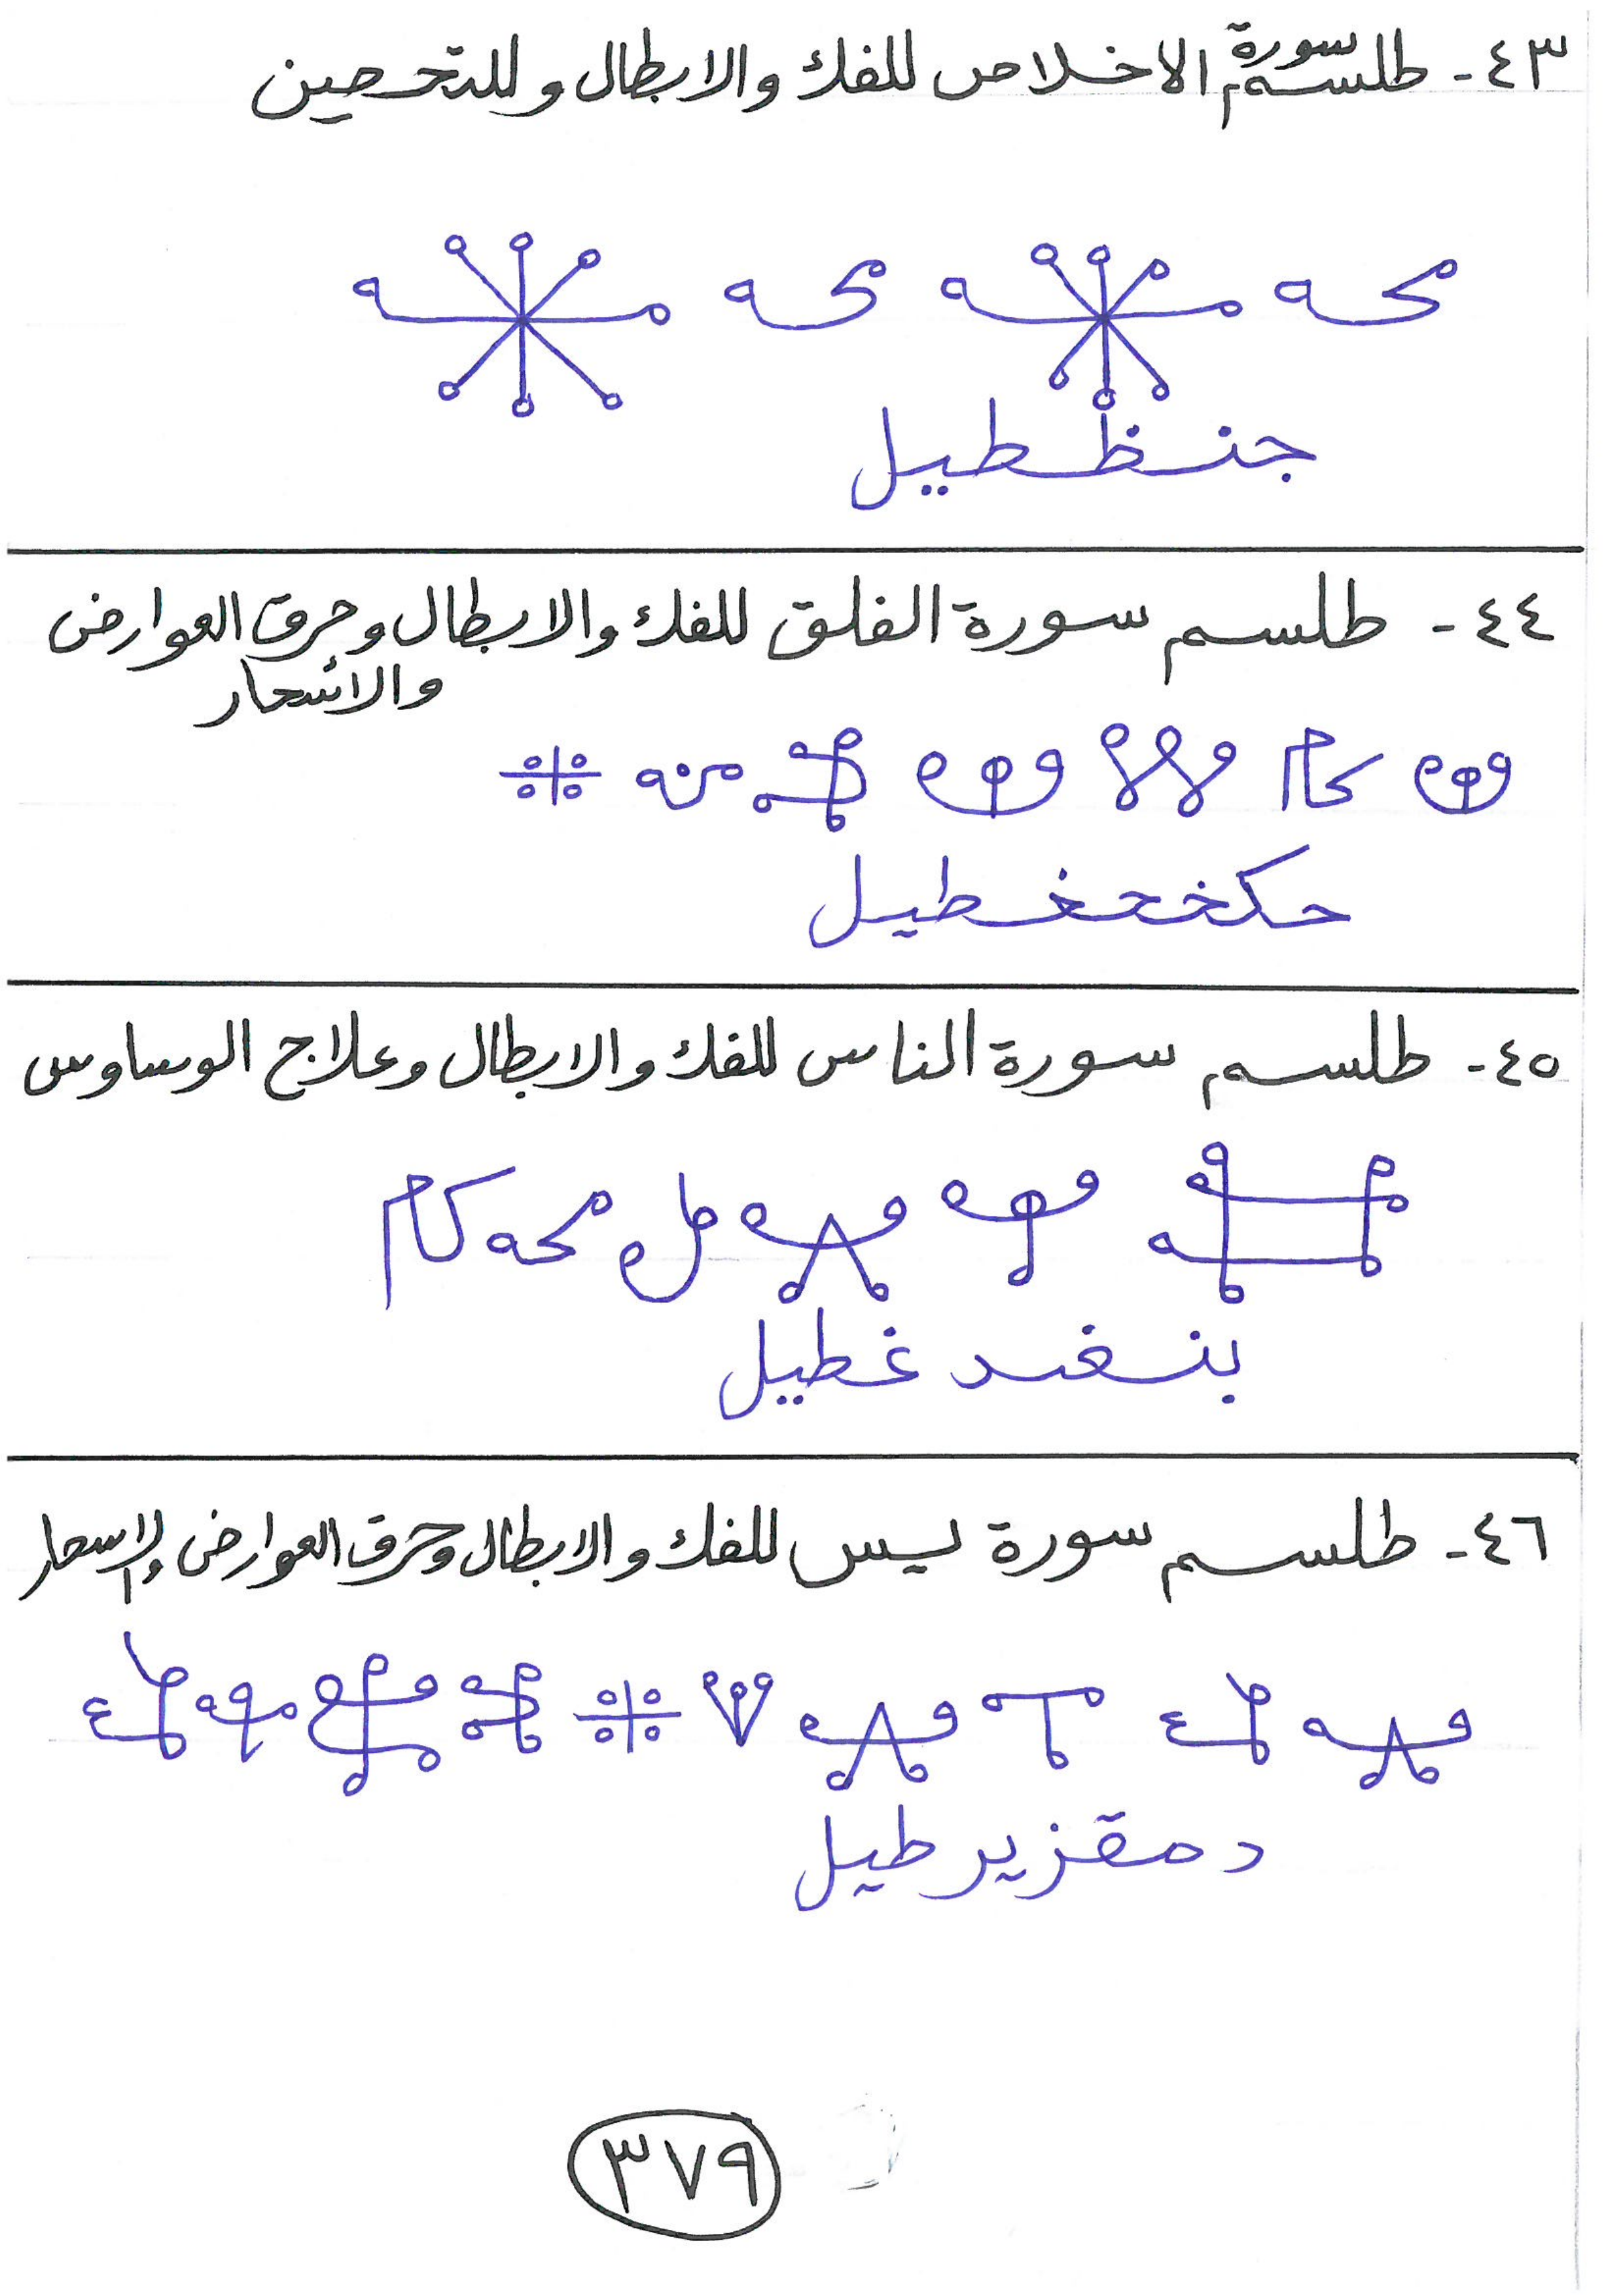 ٤٣- طلسم سورة الاخلاص للفك والابطال وللتحصين
جنظطيل
٤٤- طلسم سورة الفلق للفك والابطال وحرق العوارض
والاسحار
حكخحغطيل
٤٥- طلسم سورة الناس للفك والابطال وعلاج الوساوس
بنغد غطيل
٤٦- طلسم سورة يس للفك والابطال وحرق العوارض والاسحار
دمقزيرطيل
٣٧٩